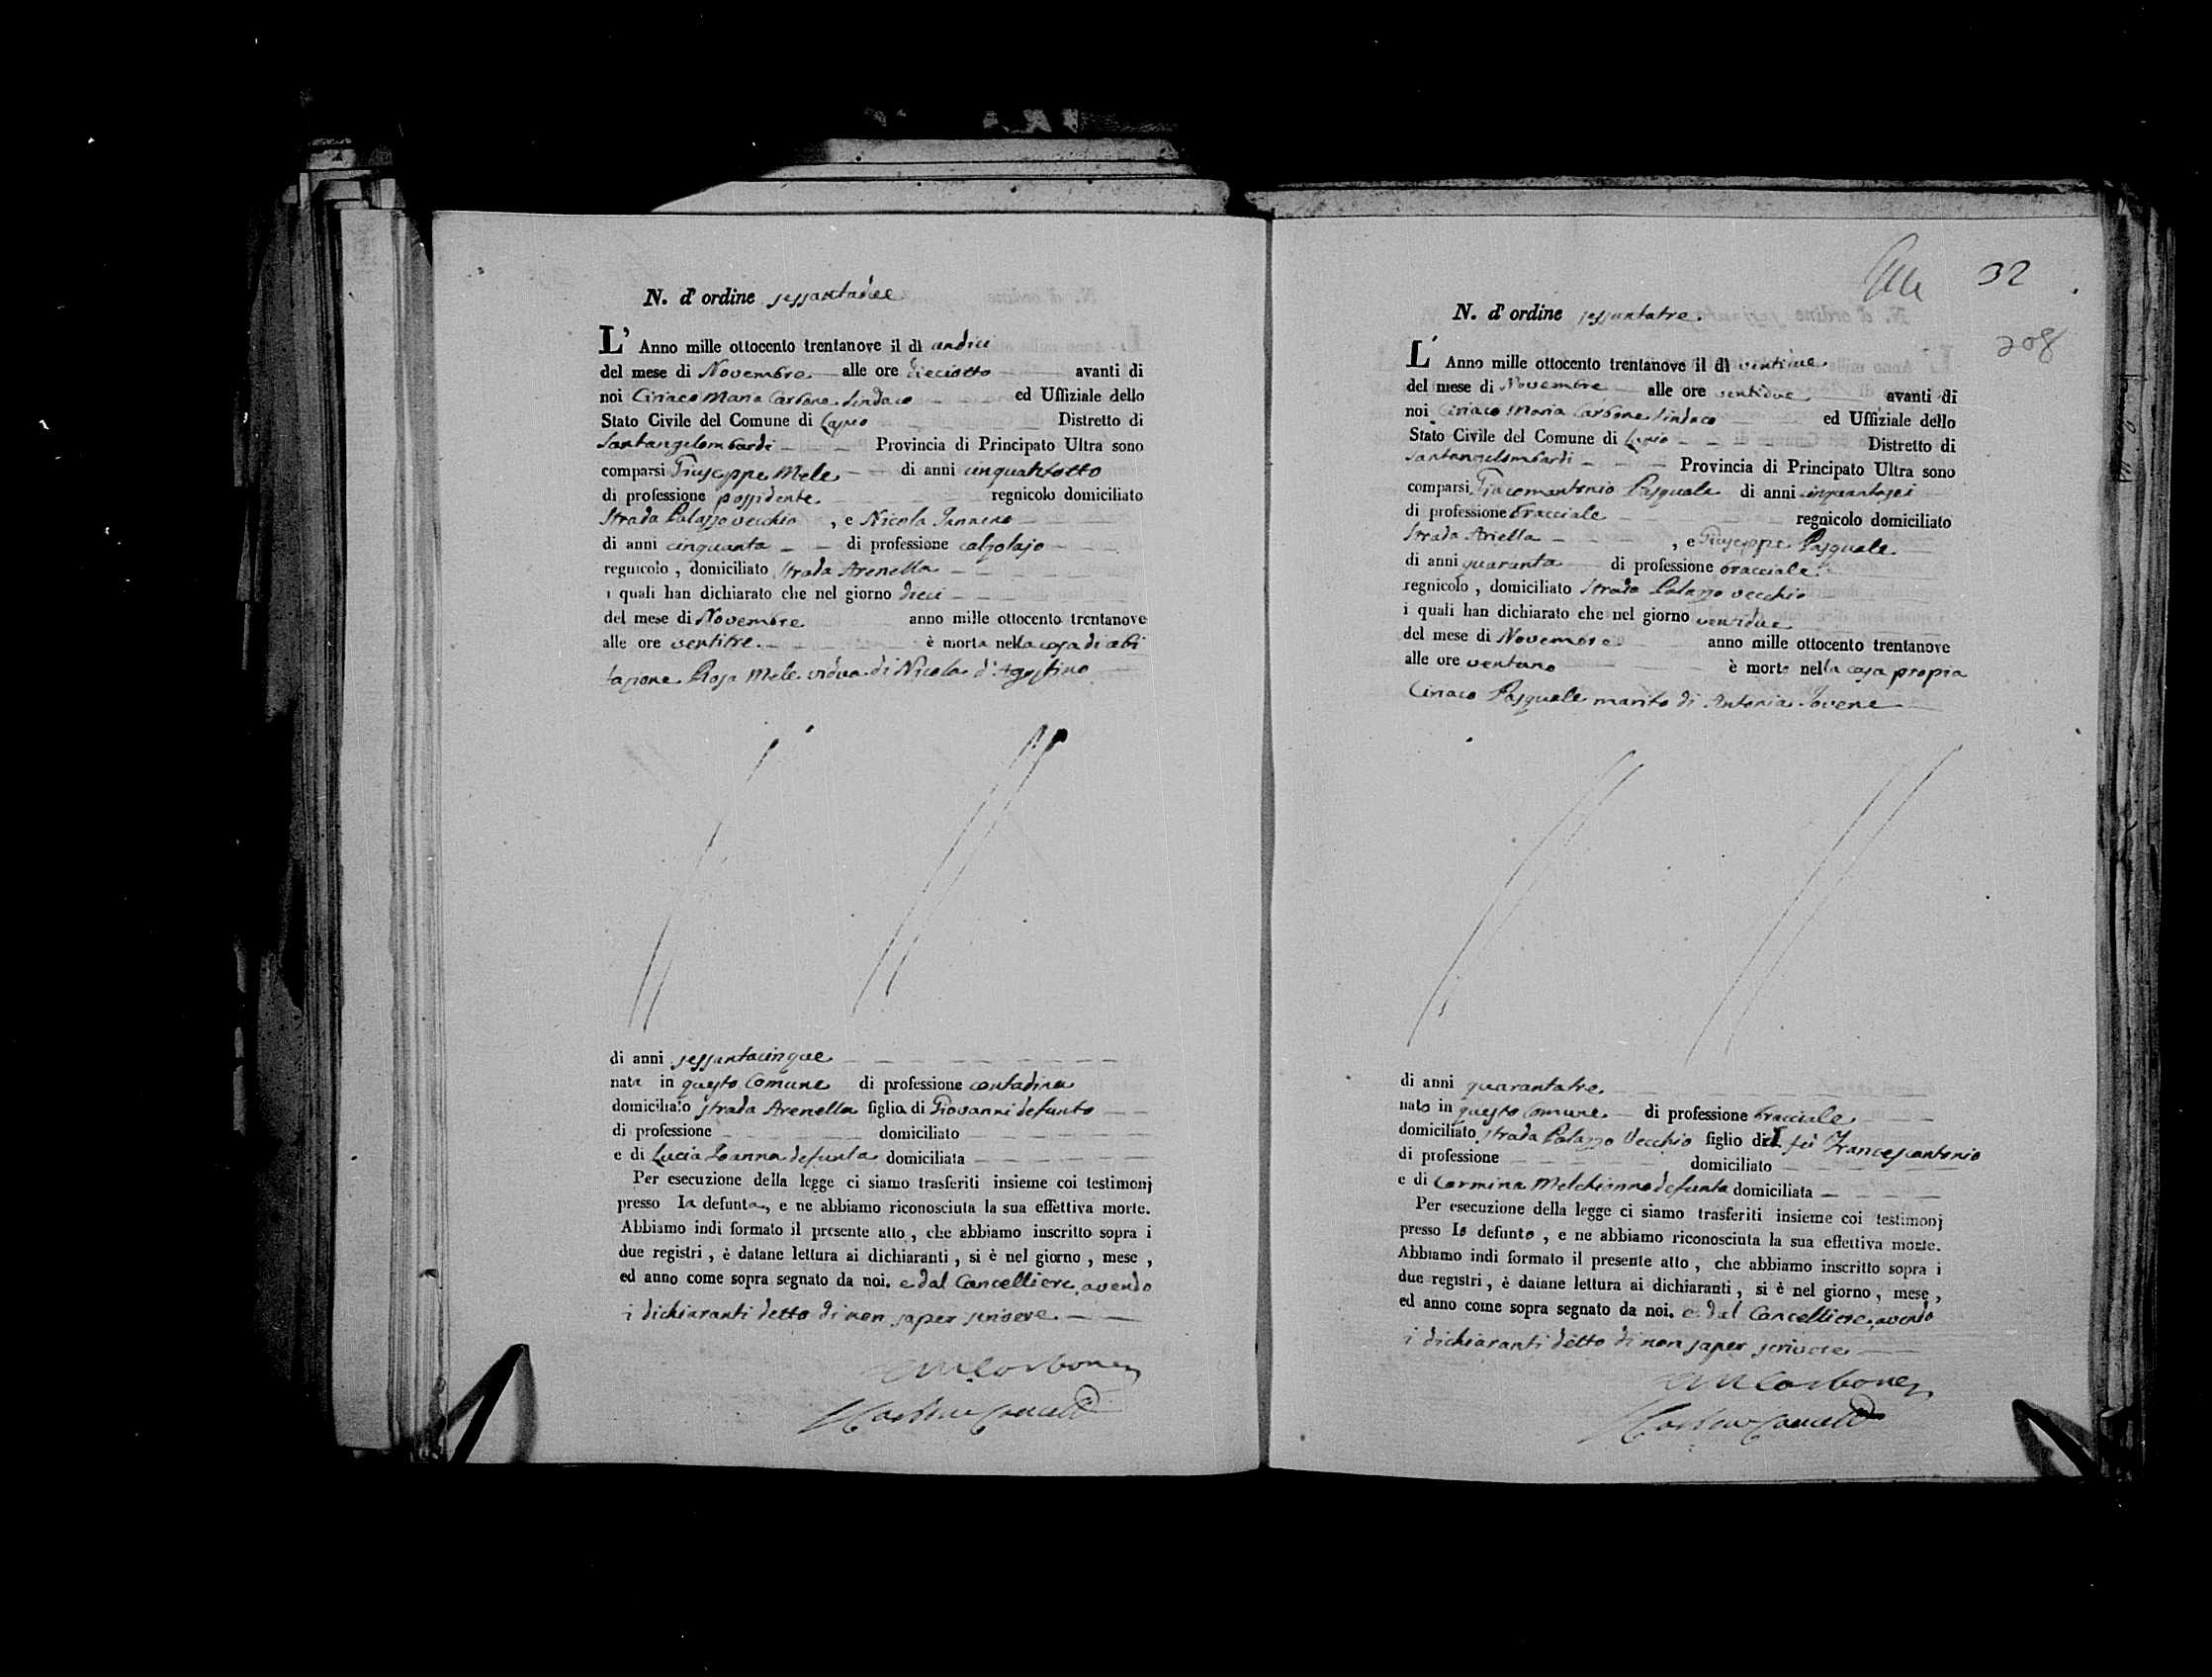 N. d' ordine sessantadue
L' Anno mille ottocento trentanove il dì undici
del mese di Novembre alle ore dieciotto avanti di
noi Ciriaco Maria Carbone Sindaco ed Uffiziale dello
Stato Civile del Comune di Lapio Distretto di
Santangelombardi Provincia di Principato Ultra sono
comparsi Giuseppe Mele di anni cinquantotto
di professione possidente regnicolo domiciliato
Strada Palazzo vecchio , e Nicola
di anni cinquanta di professione calzolajo
regnicolo , domiciliato Strada Arenella
i quali han dichiarato che nel giorno dieci
del mese di Novembre anno mille ottocento trentanove
alle ore ventitre è morta nella casa di abi
tazione Rosa Mele vidua di Nicola d'Agostino
di anni sessantacinque
nata in questo Comune di professione contadina
domiciliato strada Arenella figlia di Giovanni defunto
di professione domiciliato
e di Lucia Ioanna defunta domiciliata
Per esecuzione della legge ci siamo trasferiti insieme coi testimonj
presso la defunta, e ne abbiamo riconosciuta la sua effettiva morte.
Abbiamo indi formato il presente atto , che abbiamo inscritto sopra i
due registri , è datane lettura ai dichiaranti , si è nel giorno , mese ,
ed anno come sopra segnato da noi. e dal Cancelliere, avendo
i dichiaranti detto di non saper scrivere
CMCarbone
32
208
N. d' ordine sessantatre.
L' Anno mille ottocento trentanove il dì ventidue
del mese di Novembre alle ore ventidue avanti di
noi Ciriaco Maria Carbone Sindaco ed Uffiziale dello
Stato Civile del Comune di Lapio Distretto di
Santangelombardi Provincia di Principato Ultra sono
comparsi Giacomantonio Pasquale di anni cinquantasei
di professione bracciale regnicolo domiciliato
Strada Ariella , e Giuseppe Pasquale
di anni quaranta di professione bracciale
regnicolo , domiciliato Strada Palazzo vecchio
i quali han dichiarato che nel giorno ventidue
del mese di Novembre anno mille ottocento trentanove
alle ore ventuno è morto nella casa propia
Ciriaco Pasquale marito di Antonia Iovene
di anni quarantatre
nato in questo Comune di professione bracciale
domiciliato strada Palazzo Vecchio figlio del fù Francescantonio
di professione domiciliato
e di Carmina Melchionna defunta domiciliata
Per esecuzione della legge ci siamo trasferiti insieme coi testimonj
presso lo defunto , e ne abbiamo riconosciuta la sua effettiva morte.
Abbiamo indi formato il presente atto , che abbiamo inscritto sopra i
due registri , è datane lettura ai dichiaranti , si è nel giorno , mese ,
ed anno come sopra segnato da noi. e dal Cancelliere, avendo
i dichiaranti detto di non saper scrivere
CMCarbone